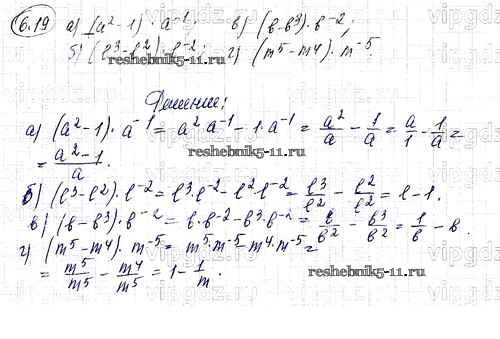 6.19 а) (a²-1)·a⁻¹; в) (b-b³)·b⁻²;
б) (l³-l²)·l⁻²; г) (m⁵-m⁴)·m⁻⁵
reshebnik5-11.ru
Решение:
а) (a²-1)·a⁻¹ = a²·a⁻¹ - 1·a⁻¹ = a²/a - 1/a = a/1 - 1/a =
reshebnik5-11.ru
= a²-1/a.
б) (l³-l²)·l⁻² = l³·l⁻² - l²·l⁻² = l³/l² - l²/l² = l-1.
в) (b-b³)·b⁻² = b·b⁻² - b³·b⁻² = b/b² - b³/b² = 1/b - b.
г) (m⁵-m⁴)·m⁻⁵ = m⁵·m⁻⁵ m⁴·m⁻⁵ =
= m⁵/m⁵ - m⁴/m⁵ = 1 - 1/m.
reshebnik5-11.ru